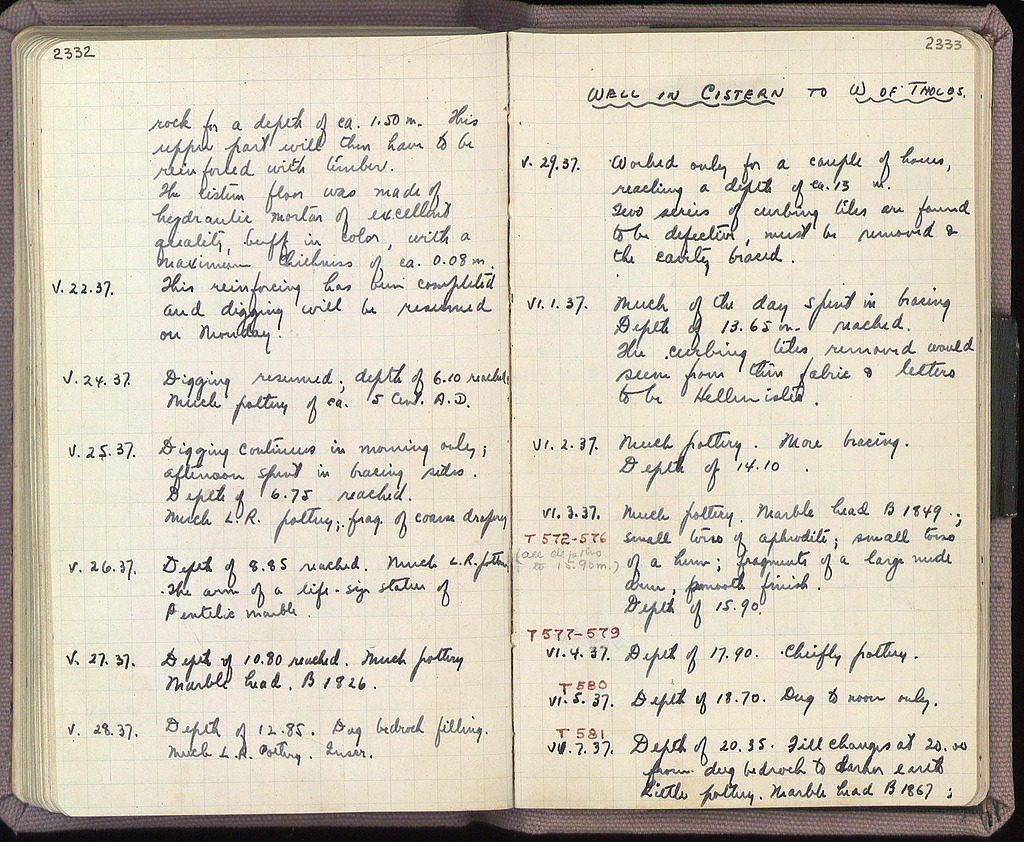 2332
rock for a depth of ca. 1.50 m. This
upper part will then have to be
reinforced with timber.
The cistern floor was made of
hydraulic mortar of excellent
quality, buff in color, with a
maximum thickness of ca. 0.08 m.
V. 22.37. This reinforcing has been completed
and digging will be resumed
on Monday.
V. 24.37 Digging resumed; depth of 6.10 reached.
Much pottery of ca. 5 Cent. A.D.
V. 25.37. Digging continues in morning only;
afternoon spent in bracing sides.
Depth of 6.75 reached.
Much L.R. pottery; frag. of coarse drapery
V. 26.37. Depth of 8.85 reached. Much L.R. pottery
The arm of a life-size statue of
Pentelic marble.
V. 27.37. Depth of 10.80 reached. Much pottery
Marble head, B 1826.
V. 28.37. Depth of 12.85. Dug bedrock filling.
Much L.R. Pottery. Inscr.
2333
WELL IN CISTERN TO W OF THOLOS.
V. 29.37. Worked only for a couple of hours,
reaching a depth of ca. 13 m.
Two series of curbing tiles are found
to be defective, must be removed &
the cavity braced.
VI.1.37. Much of the day spent in bracing
Depth of 13.65 m. reached.
The curbing tiles removed would
seem from their fabric & letters
to be Hellenistic.
VI.2.37. Much pottery. More bracing.
Depth of 14.10.
VI.3.37. Much pottery. Marble head B 1849.;
T 572-576 small torso of aphrodite; small torso
(all depths
to 15.90m.) of a herm; fragments of a large nude
arm, smooth finish.
Depth of 15.90.
T 577-579
VI.4.37. Depth of 17.90. Chiefly pottery.
T 580
VI.5.37. Depth of 18.70. Dug to noon only.
T 581
VI.7.37. Depth of 20.35. Fill changes at 20.00
from dug bedrock to darker earth
Little pottery. Marble head B 1867;